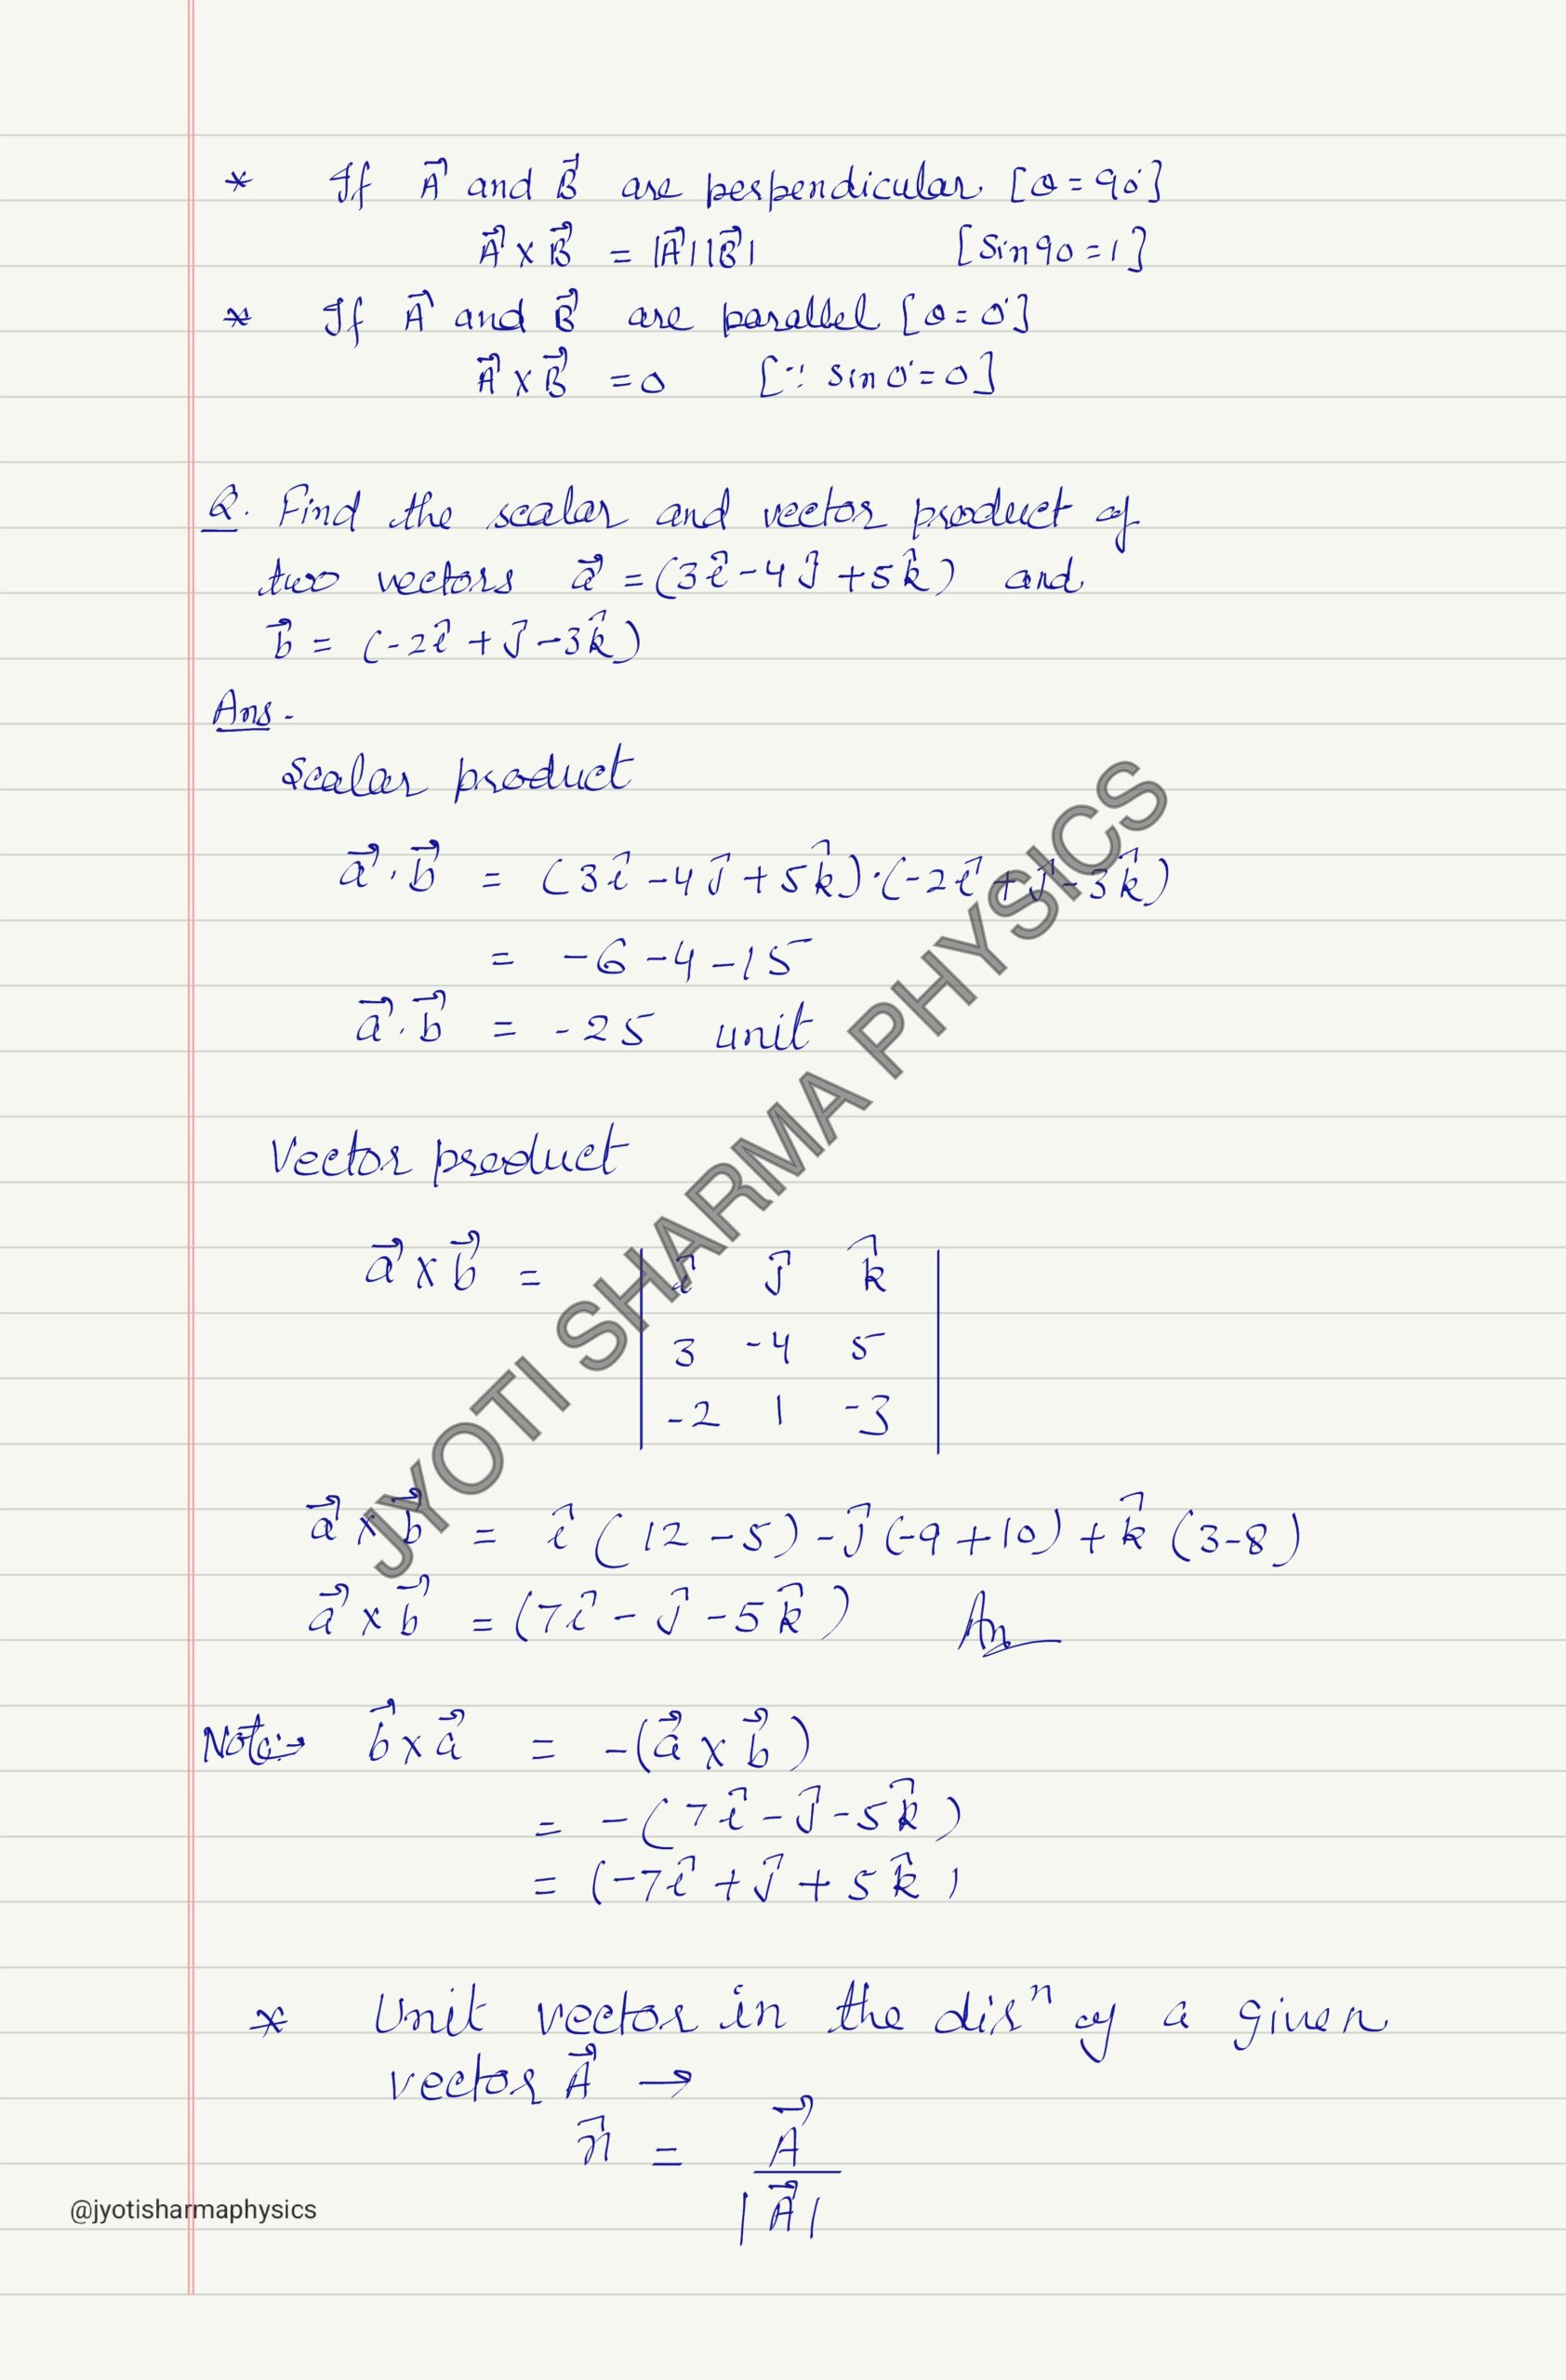 * If A⃗ and B⃗ are perpendicular [θ=90°]
A⃗ × B⃗ = |A⃗||B⃗| [Sin90=1]
* If A⃗ and B⃗ are parallel [θ=0°]
A⃗ × B⃗ = 0 [∵ sin0°=0]
Q. Find the scalar and vector product of
two vectors a⃗ = (3î-4ĵ+5k̂) and
b⃗ = (-2î+ĵ-3k̂)
Ans.
Scalar product
a⃗·b⃗ = (3î-4ĵ+5k̂)·(-2î+ĵ-3k̂)
= -6-4-15
a⃗·b⃗ = -25 unit
Vector product
a⃗×b⃗ = | î ĵ k̂ |
| 3 -4 5 |
| -2 1 -3 |
a⃗×b⃗ = î(12-5)-ĵ(-9+10)+k̂(3-8)
a⃗×b⃗ = (7î-ĵ-5k̂) An
Note:→ b⃗×a⃗ = -(a⃗×b⃗)
= -(7î-ĵ-5k̂)
= (-7î+ĵ+5k̂)
* Unit vector in the dirⁿ of a given
vector A⃗ →
n̂ = A⃗
|A⃗|
@jyotisharmaphysics
JYOTI SHARMA PHYSICS